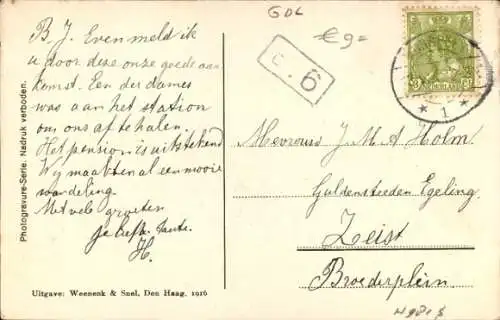 GDL
€9=
B. J. Even meld ik
u door deze onze goede aan
komst. Een der dames
was aan het station
om ons af te halen.
Het pension is uitstekend
Wij maakten al een mooie
wandeling.
Met vele groeten
je liefh. tante.
H.
c. 6
NEDERLAND
* 1 *
Mevrouw J. M. A Holm.
Guldensteeden Egeling
Zeist
Broederplein
Photogravure-Serie. Nadruk verboden.
Uitgave: Weenenk & Snel, Den Haag, 1916